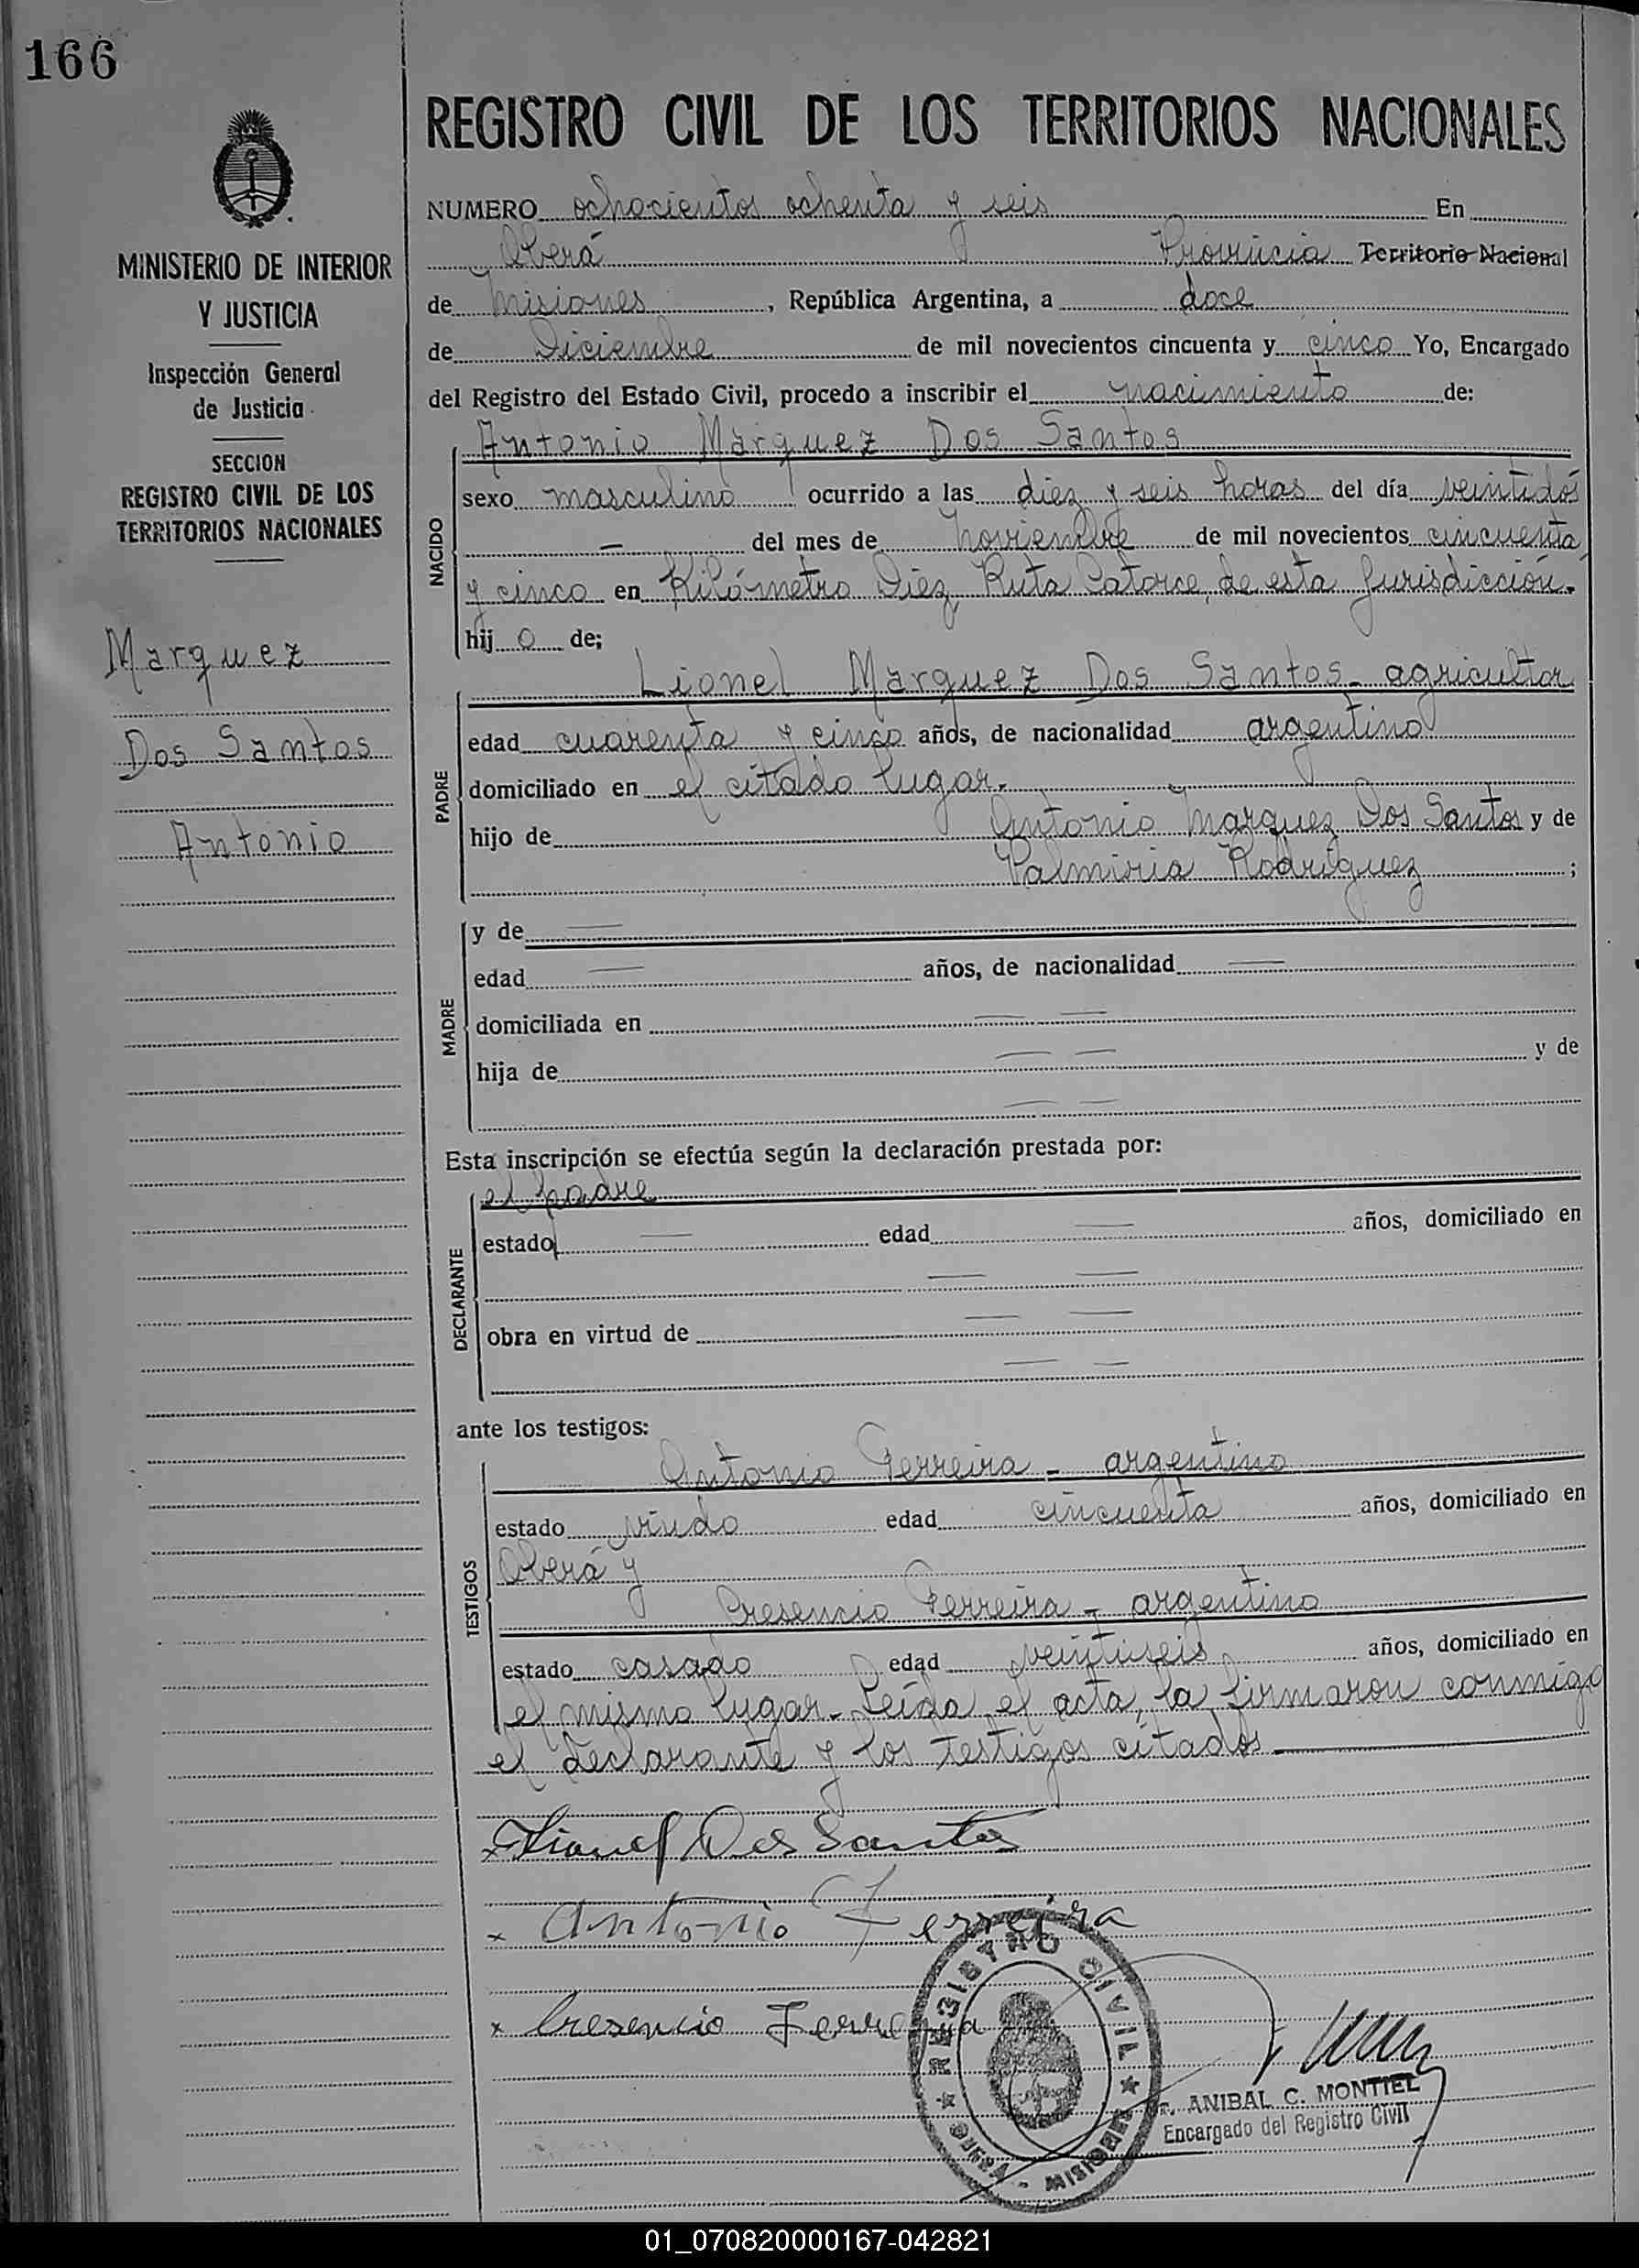 166
REGISTRO CIVIL DE LOS TERRITORIOS NACIONALES
MINISTERIO DE INTERIOR
Y JUSTICIA
Inspección General
de Justicia
SECCION
REGISTRO CIVIL DE LOS
TERRITORIOS NACIONALES
Marquez
Dos Santos
Antonio
NUMERO ochocientos ochenta y seis En
Oberá Provincia Territorio Nacional
de Misiones, República Argentina, a doce
de Diciembre de mil novecientos cincuenta y cinco Yo, Encargado
del Registro del Estado Civil, procedo a inscribir el nacimiento de:
NACIDO
Antonio Marquez Dos Santos
sexo masculino ocurrido a las diez y seis horas del día veintidós
— del mes de Noviembre de mil novecientos cincuenta
y cinco en Kilómetro Diez, Ruta Catorce, de esta Jurisdicción.
hij o de;
PADRE
Lionel Marquez Dos Santos - agricultor
edad cuarenta y cinco años, de nacionalidad argentino
domiciliado en el citado lugar.
hijo de Antonio Marquez Dos Santos y de
Palmiria Rodríguez ;
MADRE
y de —
edad — años, de nacionalidad —
domiciliada en — —
hija de — — y de
— —
Esta inscripción se efectúa según la declaración prestada por:
DECLARANTE
el padre
estado — edad — años, domiciliado en
— —
obra en virtud de — —
— —
ante los testigos:
TESTIGOS
Antonio Ferreira - argentino
estado viudo edad cincuenta años, domiciliado en
Oberá y
Cresencio Ferreira - argentino
estado casado edad veintiseis años, domiciliado en
el mismo lugar - Leída el acta, la firmaron conmigo
el declarante y los testigos citados —
x Lionel Dos Santos
x Antonio Ferreira
x Cresencio Ferreira
REGISTRO CIVIL
OBERA - MISIONES
ANIBAL C. MONTIEL
Encargado del Registro Civil
01_070820000167-042821